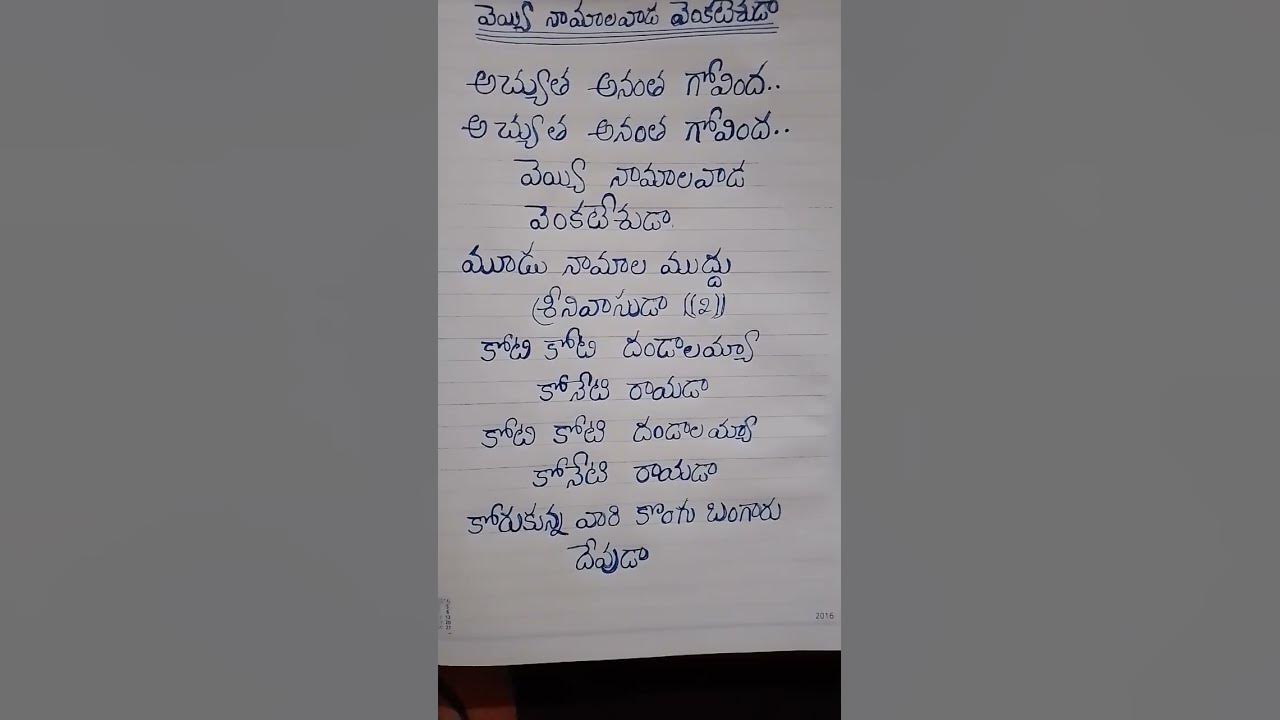 వెయ్యి నామాలవాడ వెంకటేశుడా
అచ్యుత అనంత గోవింద..
అచ్యుత అనంత గోవింద..
వెయ్యి నామాలవాడ
వెంకటేశుడా.
మూడు నామాల ముద్దు
శ్రీనివాసుడా ((2))
కోటి కోటి దండాలయ్యా
కోనేటి రాయడా
కోటి కోటి దండాలయ్యా
కోనేటి రాయడా
కోరుకున్న వారి కొంగు బంగారు
దేవుడా
2016